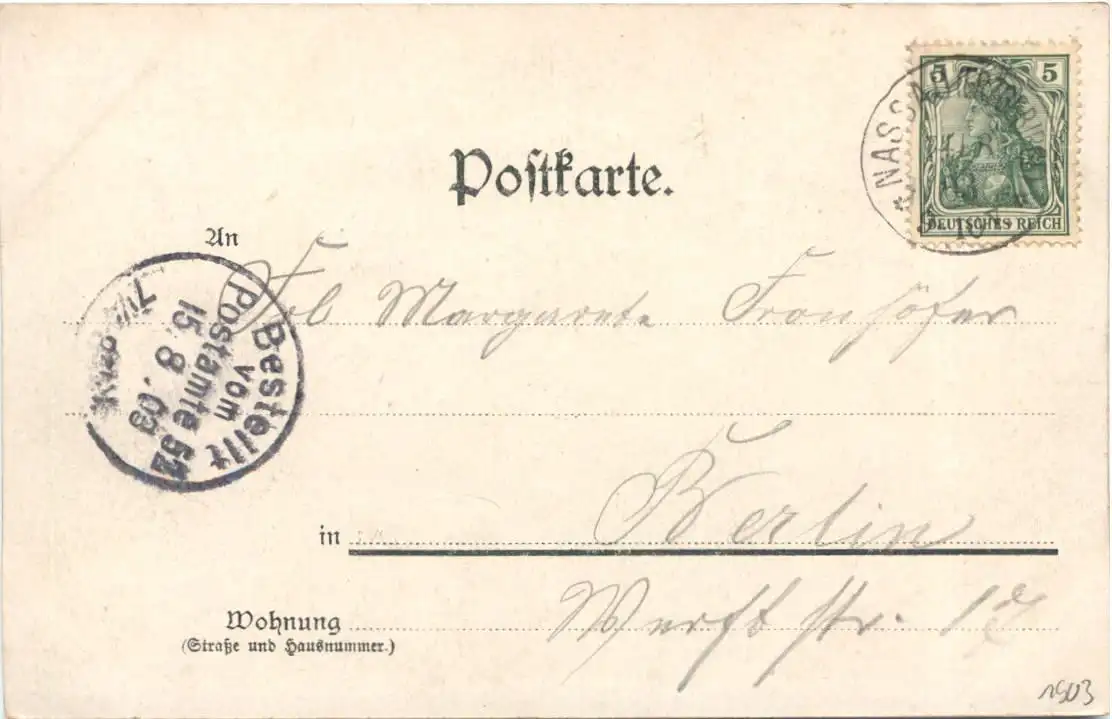 5 5
NASSAU (ERZGEBIRGE)
DEUTSCHES REICH
Postkarte.
An Frl Margarete Fronhöfer
Bestellt
vom
Postamte 52
15. 8. 03
in Berlin
Werftstr. 17
Wohnung
(Straße und Hausnummer.)
1903